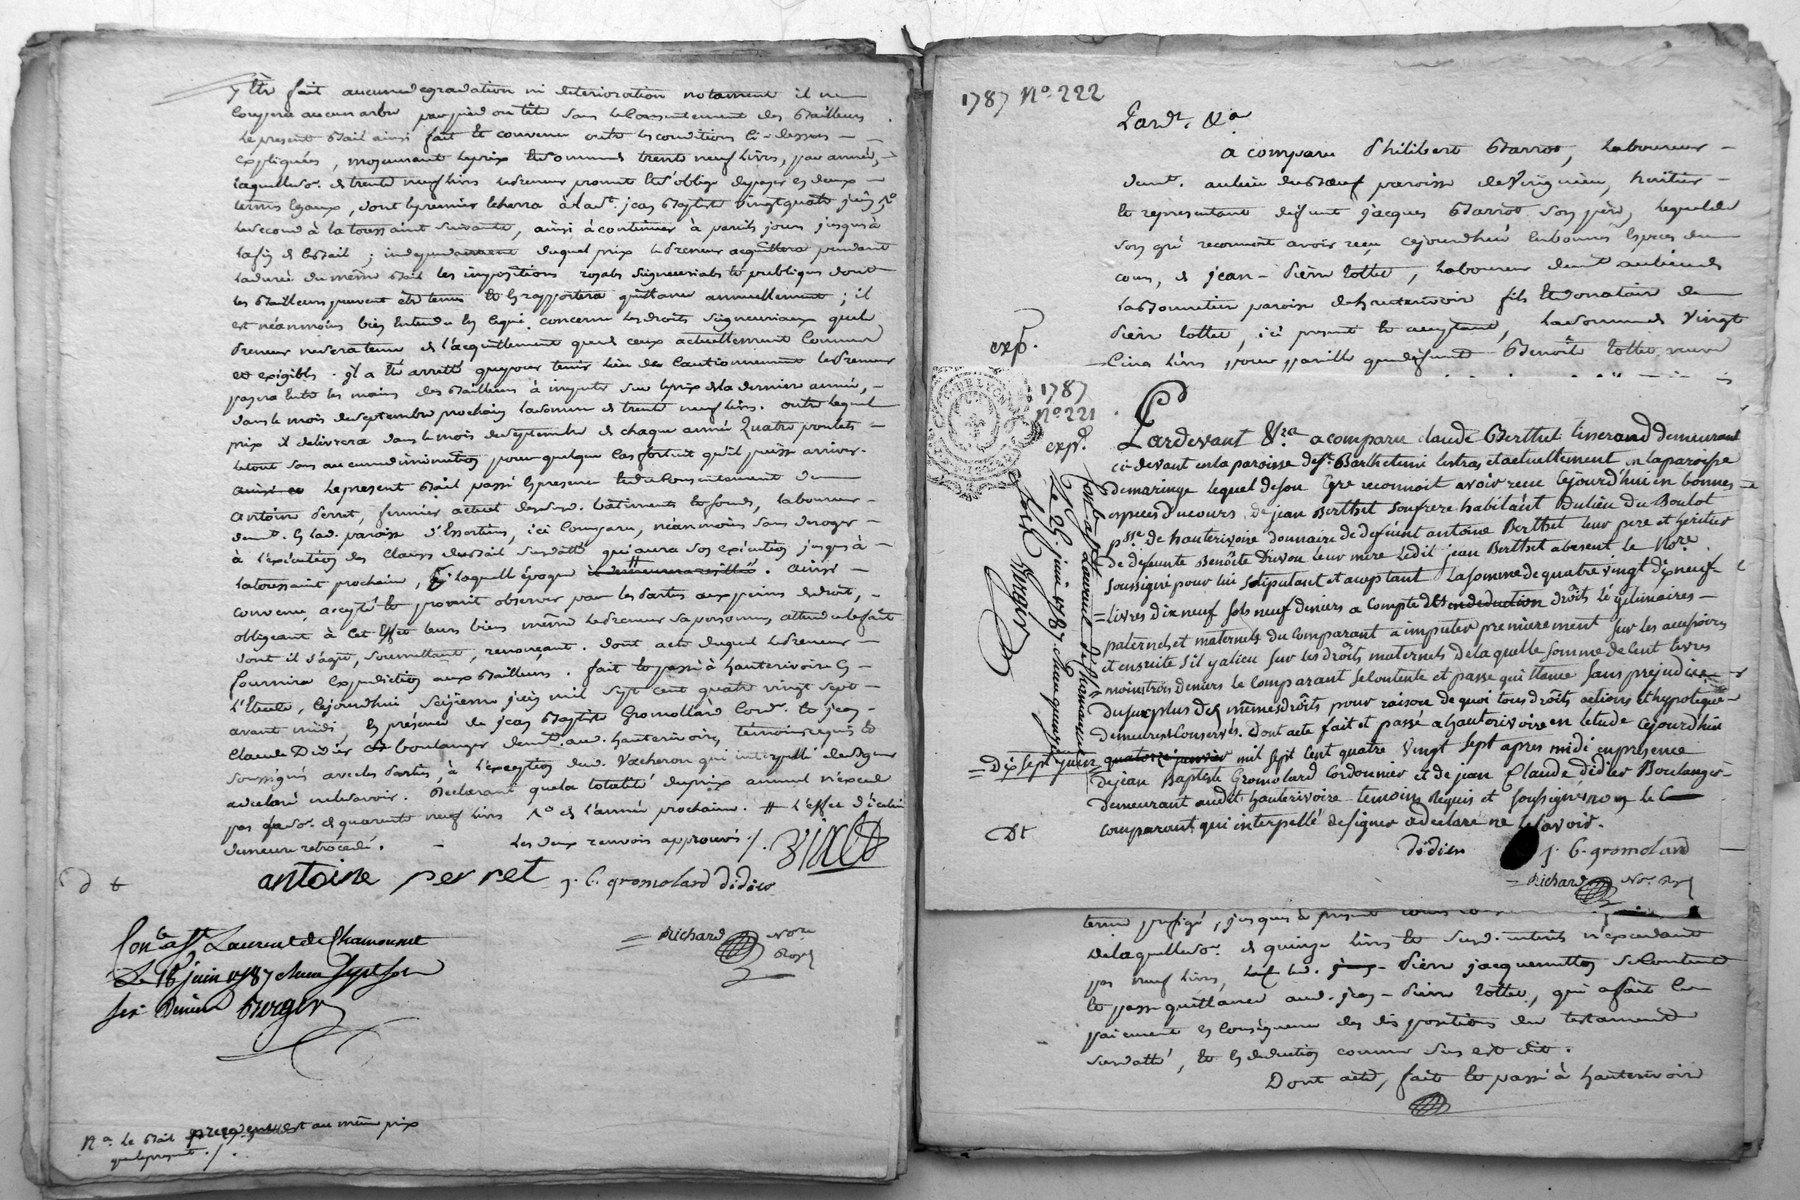 y être fait aucune degradation ni deterioration notament il ne
coupera aucun arbre par pied ou tête sans le consentement des Bailleurs.
le present Bail ainsi fait et convenu outre les conditions ci-dessus
expliquées, moyennant le prix et somme de trente neuf livres, par année,
laquelle so. de trente neuf livres le preneur promet et s'oblige de payer en deux
termes egaux, dont le premier echerra à la st. jean Baptiste vingt quatre juin
le second à la toussaint suivante, ainsi à continuer à pareils jours jusqu'à
la fin de Bail; independament duquel prix le Preneur acquittera pendant
la durée du même Bail les impositions royales seigneuriales et publiques dont
les Bailleurs peuvent être tenus et en rapportera quittance annuellement; il
est néanmoins bien entendu en ce qui concerne les droits seigneuriaux que le
Preneur ne sera tenu de l'acquittement que de ceux actuellement
et exigibles. il a été arretté que pour tenir lieu de cautionnement le Preneur
payera entre les mains des Bailleurs à imputer sur le prix de la derniere année,
dans le mois de septembre prochain la somme de trente neuf livres. outre lequel
prix il delivrera dans le mois de septembre de chaque année quatre poulets
le tout sans aucune diminution pour quelque cas fortuit qu'il puisse arriver.
le present Bail passé en presence et du consentement de
antoine Perret, fermier actuel desd. bâtiments et fonds, laboureur
demt. en lad. paroisse d'Essertines, ici comparu, néanmoins sans deroger
à l'exécution des clauses du Bail susdatté qui aura son exécution jusqu'à
la toussaint prochaine, à laquelle époque . ainsi
convenu, accepté et promis observer par les Parties aux peines de droit,
obligeant à cet effet leurs biens même le Preneur sa personne attendu le fait
dont il s'agit, soumettant, renonçant. dont acte duquel le Preneur
fournira expedition aux Bailleurs. fait et passé à hauterivoire en
l'Etude, cejourdhui seizieme juin mil sept cent quatre vingt sept
avant midi, en présence de jean Baptiste Gromollard cord. et jean
Claude Didier boulanger demt. aud. hauterivoire, témoins requis et
soussignés avec les Parties, à l'exception dud. Vacheron qui interpellé de signer
a declaré ne le savoir. Declarant que la totalité du prix annuel n'excede
pas la so. de quarante neuf livres de l'année prochaine. # l'effet d'icelui
demeure retrocedé. - les deux renvois approuvés /.
antoine perret j. b. gromolard didier
d t
Richard Nore Royl
Conlé a St Laurent de Chamousset
Le 18 juin 1787 sept sols
six Deniers Berger
Na. Le Bail precedent est au même prix
que le present. /.
1787 No. 222
Pardt. &a
a comparu Philibert Barrot, laboureur
demt. au lieu du Bœuf paroisse de Virignieu, heritier
et representant défunt jacques Barrot son père, lequel de
son gré reconnait avoir reçu cejourdhui en bonnes Especes du
cours, de jean-Pierre tollet, laboureur demt. au lieu de
la Bonnetier paroisse de hauterivoire fils et donataire de
Pierre tollet, ici present et acceptant, la somme de vingt
exp.
cinq livres pour pareille que défunt Benoît tollet
1787
No. 221
expd.
Pardevant &ra a comparu claude Berthet tisserand demeurant
ci-devant en la paroisse de st. Barthelemi lestras et actuellement en la paroisse
de maringe lequel de son gré reconnoit avoir reçu cejourd'hui en bonnes
especes du cours, de jean Berthet son frere habitant du lieu du Boulot
psse de hauterivoire donnaire de defunt antoine Berthet leur pere et heritier
de defunte Benoite Duvou leur mere Ledit jean Berthet absent le Nore
soussigné pour lui stipulant et aceptant la somme de quatre vingt dix neuf
livres dix neuf sols neuf deniers a compte des droits Legitimaires
paternels et maternels du comparant a imputer premierement sur les accessoires
et ensuite s'il y a lieu sur les droits maternels de laquelle somme de cent livres
moins trois deniers le comparant se contente et passe quittance sans prejudice
du surplus des mêmes droits pour raison de quoi tous droits actions et hypoteque
demeurent conservés. Dont acte fait et passé a hauterivoire en l'etude cejourdhui
= Dix sept juin quatorze janvier mil sept cent quatre vingt sept apres midi en presence
de jean Baptiste Gromolard cordonnier et de jean Claude didier Boulanger
demeurant audit hauterivoire temoins Requis et soussignés non le
comparant qui interpellé de signer a declaré ne le savoir.
Dt
didier j. b. gromolard
Richard Nore Royl
Conlé a St Laurent de Chamousset
Le 25 juin 1787
sols Berger
terme prefigé, jusques à present
de laquelle so. de quinze livres et susd. interets n'excedant
pas neuf livres, led. Pierre jacquemetton se contente
et passe quittance aud. jean-Pierre tollet, qui a fait le
paiement en conséquence des dispositions du testament
susdatté, et en deduction comme sus est dit.
Dont acte, fait et passé à hauterivoire